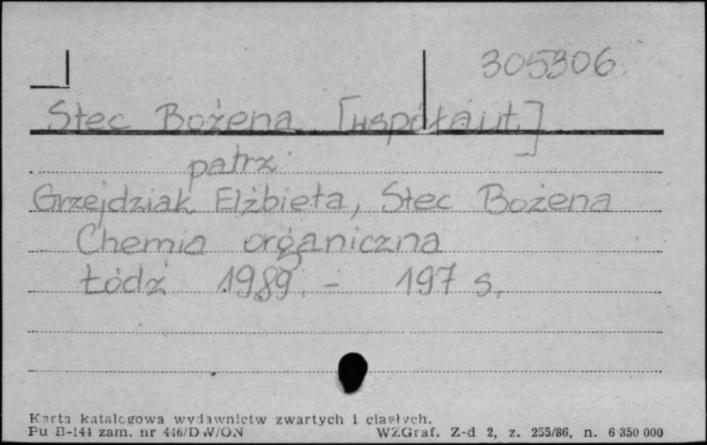 305306
Stec Bożena [współaut.]
patrz
Grzejdziak Elżbieta, Stec Bożena
Chemia organiczna
Łódź 1989. - 197 s.
Karta katalogowa wydawnictw zwartych i ciągłych.
Pu B-144 zam. nr 446/DW/ON WZGraf. Z-d 2, z. 255/86, n. 6 350 000